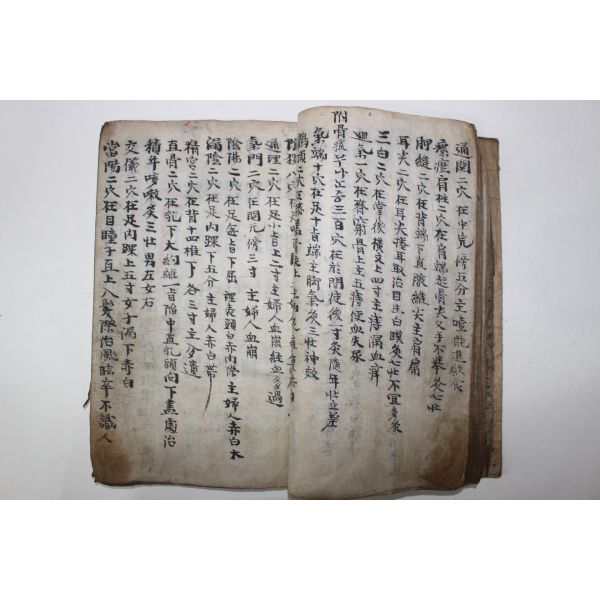 通關二穴在中完傍五分主噎能進飮食
瘰瀝肩柱二穴在肩端起骨尖又手不擧灸七壯
胛縫二穴在背端下直腋縫尖主肩痛
耳尖二穴在耳尖捲耳取治目生白膜灸七壯不宜多灸
三白二穴在掌後橫文上四寸主痔漏血痒
廻氣一穴在脊窮骨上主五痔便血失尿
附骨疽 三百穴在於間使後一寸灸隨年壯立差
氣端十穴在足十指端主脚氣灸三壯神效
鶴頂二穴在
通理二穴在足小指上二寸主婦人血崩經血多過
氣門二穴在関元傍三寸 主婦人血崩
陰陽二穴在足母指下屈裡表頭白肉際主婦人赤白
漏陰二穴在足內踝下五分主婦人赤白帶
精宮二穴在背十四椎下各三寸主夢遺
直骨二穴在乳下大約離一指陷中直乳頭向下盡處治
積年咳嗽灸三壯男左女右
交儀二穴在足內踝上五寸女子漏下赤白
當陽二穴在目瞳子直上入髮際治風眩卒不識人